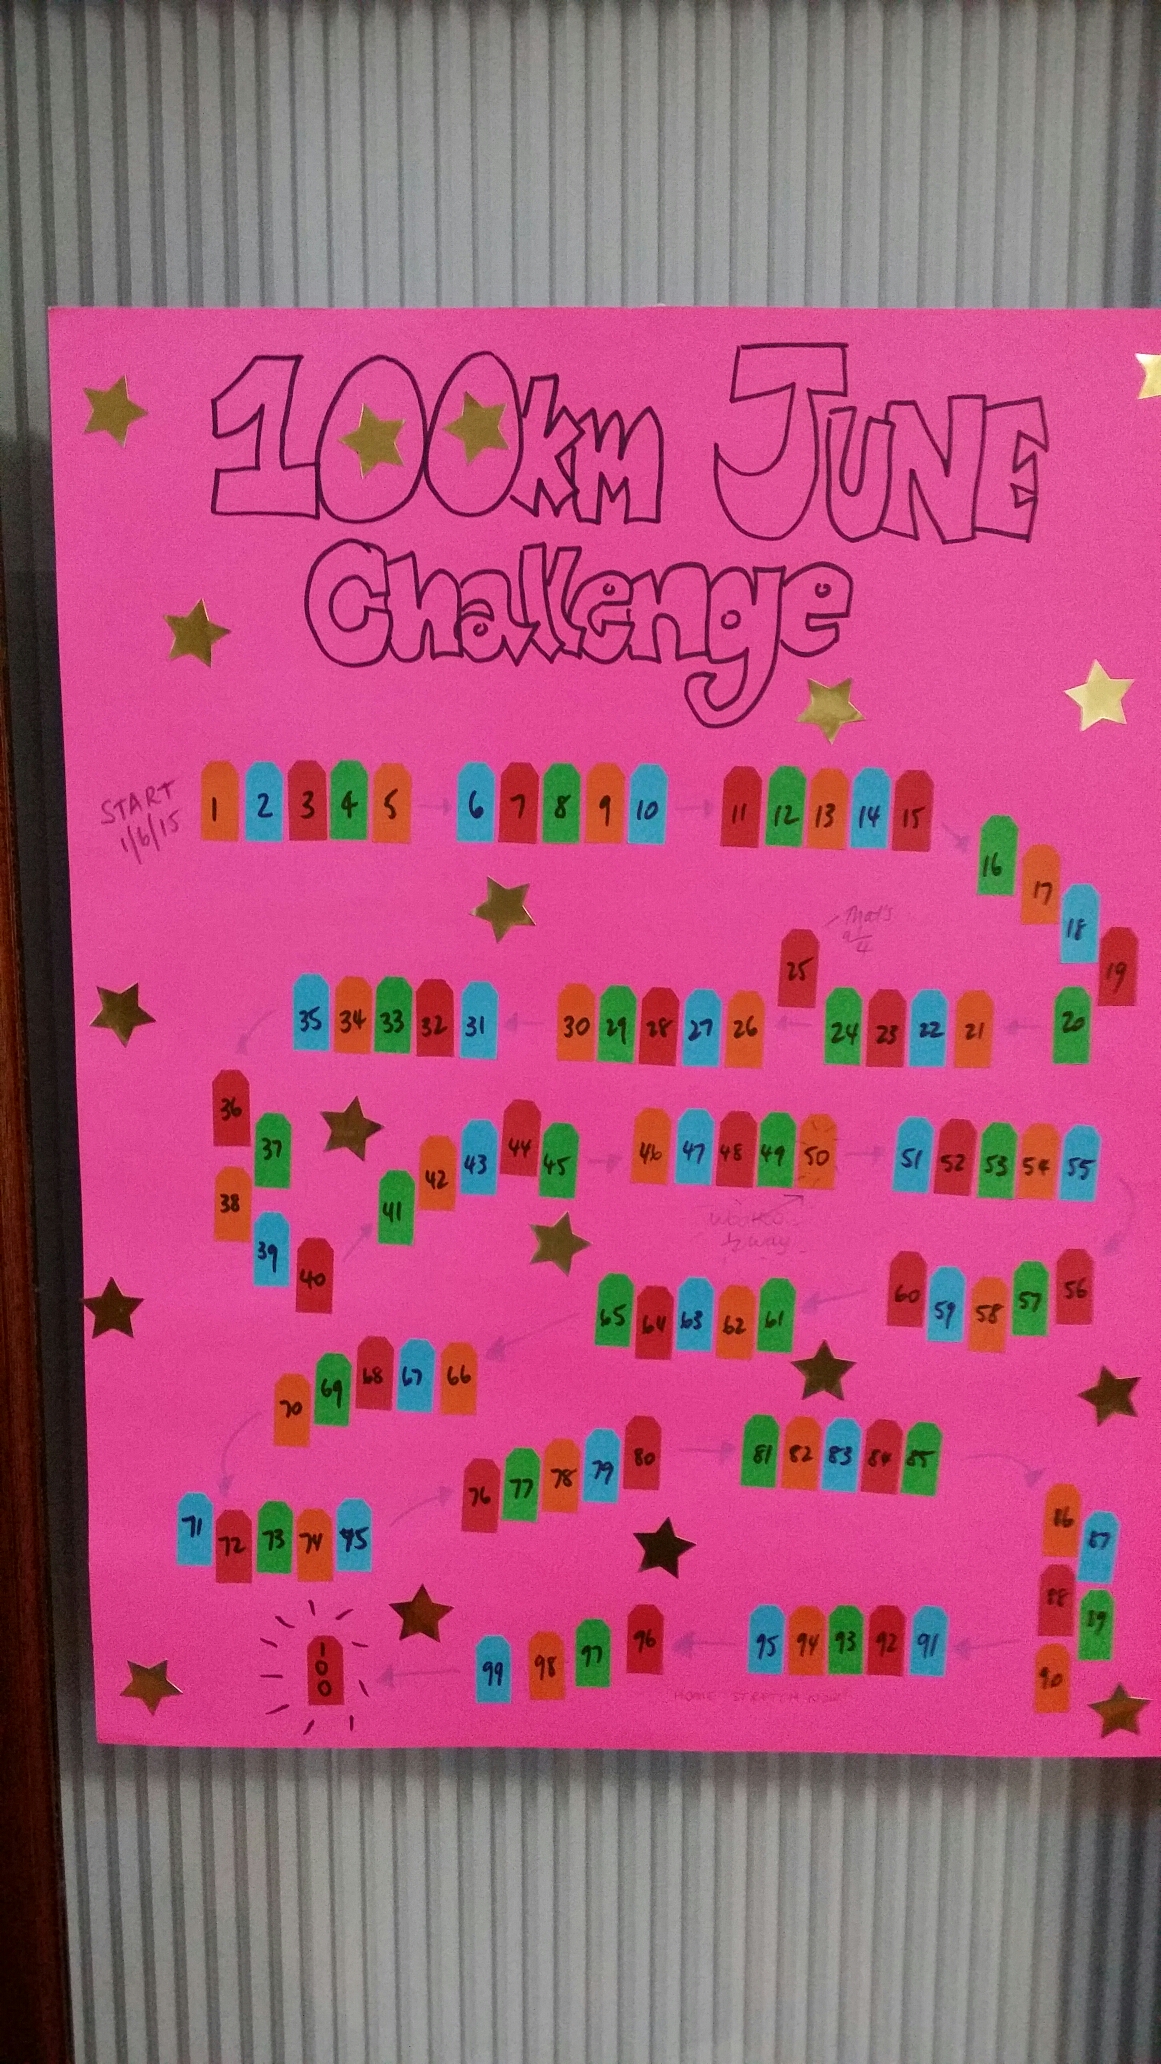 100km JUNE
Challenge
START
1/6/15
1 2 3 4 5 6 7 8 9 10 11 12 13 14 15
16
17
18
19
That's
a 1/4
25
35 34 33 32 31 30 29 28 27 26 24 23 22 21 20
36
37
38
39
40
41 42 43 44 45 46 47 48 49 50 51 52 53 54 55
1/2 way
65 64 63 62 61 60 59 58 57 56
70 69 68 67 66
71 72 73 74 75 76 77 78 79 80 81 82 83 84 85
86 87
88 89
90
100 99 98 97 96 95 94 93 92 91
HOME STRETCH NOW!